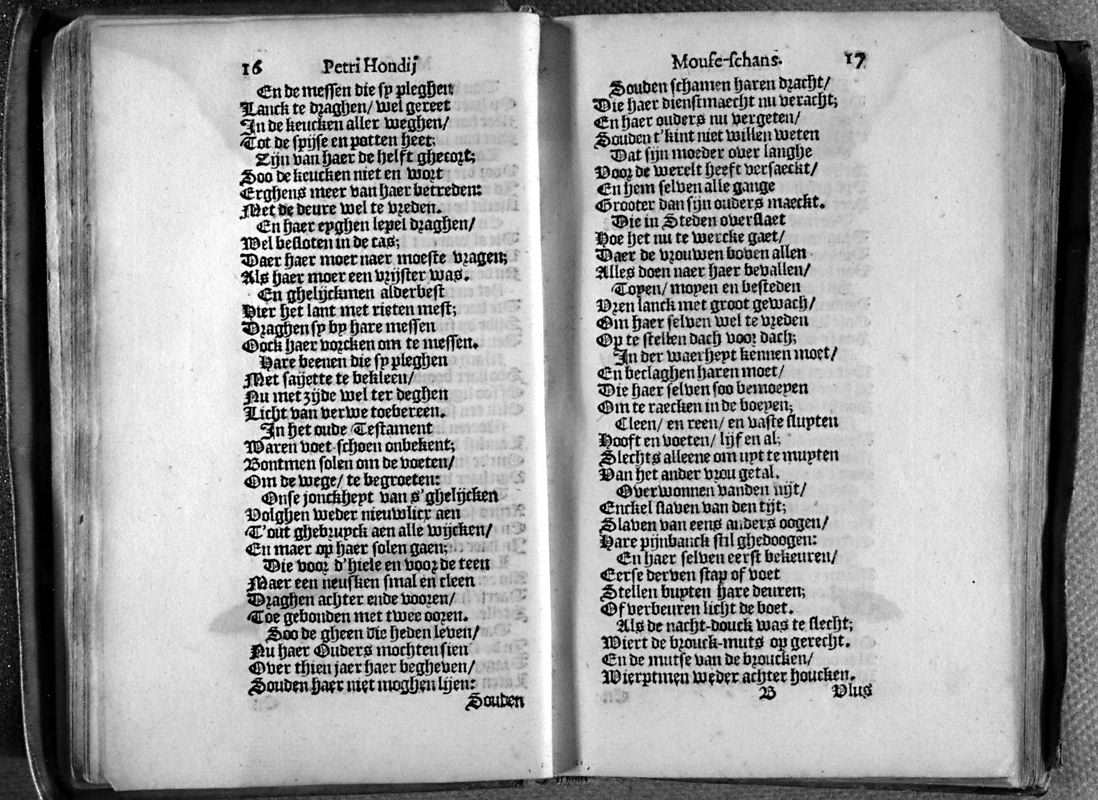 16 Petri Hondij
En de messen die sy pleghen
Lanck te draghen/ wel gereet
In de keucken aller weghen/
Tot de spijse en potten heet;
Zijn van haer de helft ghecort;
Soo de keucken niet en wort
Erghens meer van haer betreden:
Met de deure wel te vreden.
En haer eyghen lepel draghen/
Wel besloten in de cas;
Daer haer moer naer moeste vragen;
Als haer moer een vrijster was.
En ghelijckmen alderbest
Hier het lant met risten mest;
Draghen sy by hare messen
Oock haer vorcken om te messen.
Hare beenen die sy pleghen
Met sayette te bekleen/
Nu met zijde wel ter deghen
Licht van verwe toebereen.
In het oude Testament
Waren voet-schoen onbekent;
Bontmen solen om de voeten/
Om de wege/ te begroeten:
Onse jonckheyt van s'ghelijcken
Volghen weder nieuwlicx aen
T'out ghebruyck aen alle wijcken/
En maer op haer solen gaen;
Die voor d'hiele en voor de teen
Maer een neusken smal en cleen
Draghen achter ende vooren/
Toe gebonden met twee ooren.
Soo de gheen die heden leven/
Nu haer Ouders mochten sien
Over thien jaer haer begheven/
Souden haer niet moghen lijen:
Souden
Mouse-schans. 17
Souden schamen haren dracht/
Die haer dienstmaecht nu veracht;
En haer ouders nu vergeten/
Souden t'kint niet willen weten
Dat sijn moeder over langhe
Voor de werelt heeft versaeckt/
En hem selven alle gange
Grooter dan sijn ouders maeckt.
Die in Steden overslaet
Hoe het nu te wercke gaet/
Daer de vrouwen boven allen
Alles doen naer haer bevallen/
Toyen/ moyen en besteden
Vren lanck met groot gewach/
Om haer selven wel te vreden
Op te stellen dach voor dach;
In der waerheyt kennen moet/
En beclaghen haren moet/
Die haer selven soo bemoeyen
Om te raecken in de boeyen;
Cleen/ en reen/ en vaste sluyten
Hooft en voeten/ lijf en al;
Slechts alleene om uyt te muyten
Van het ander vrou getal.
Overwonnen vanden nijt/
Enckel slaven van den tijt;
Slaven van eens anders oogen/
Hare pijnbanck stil ghedoogen:
En haer selven eerst bekeuren/
Eerse derven stap of voet
Stellen buyten hare deuren;
Of verbeuren licht de boet.
Als de nacht-douck was te slecht;
Wiert de brouck-muts op gerecht.
En de mutse van de broucken/
Wierptmen weder achter houcken.
B Vlus